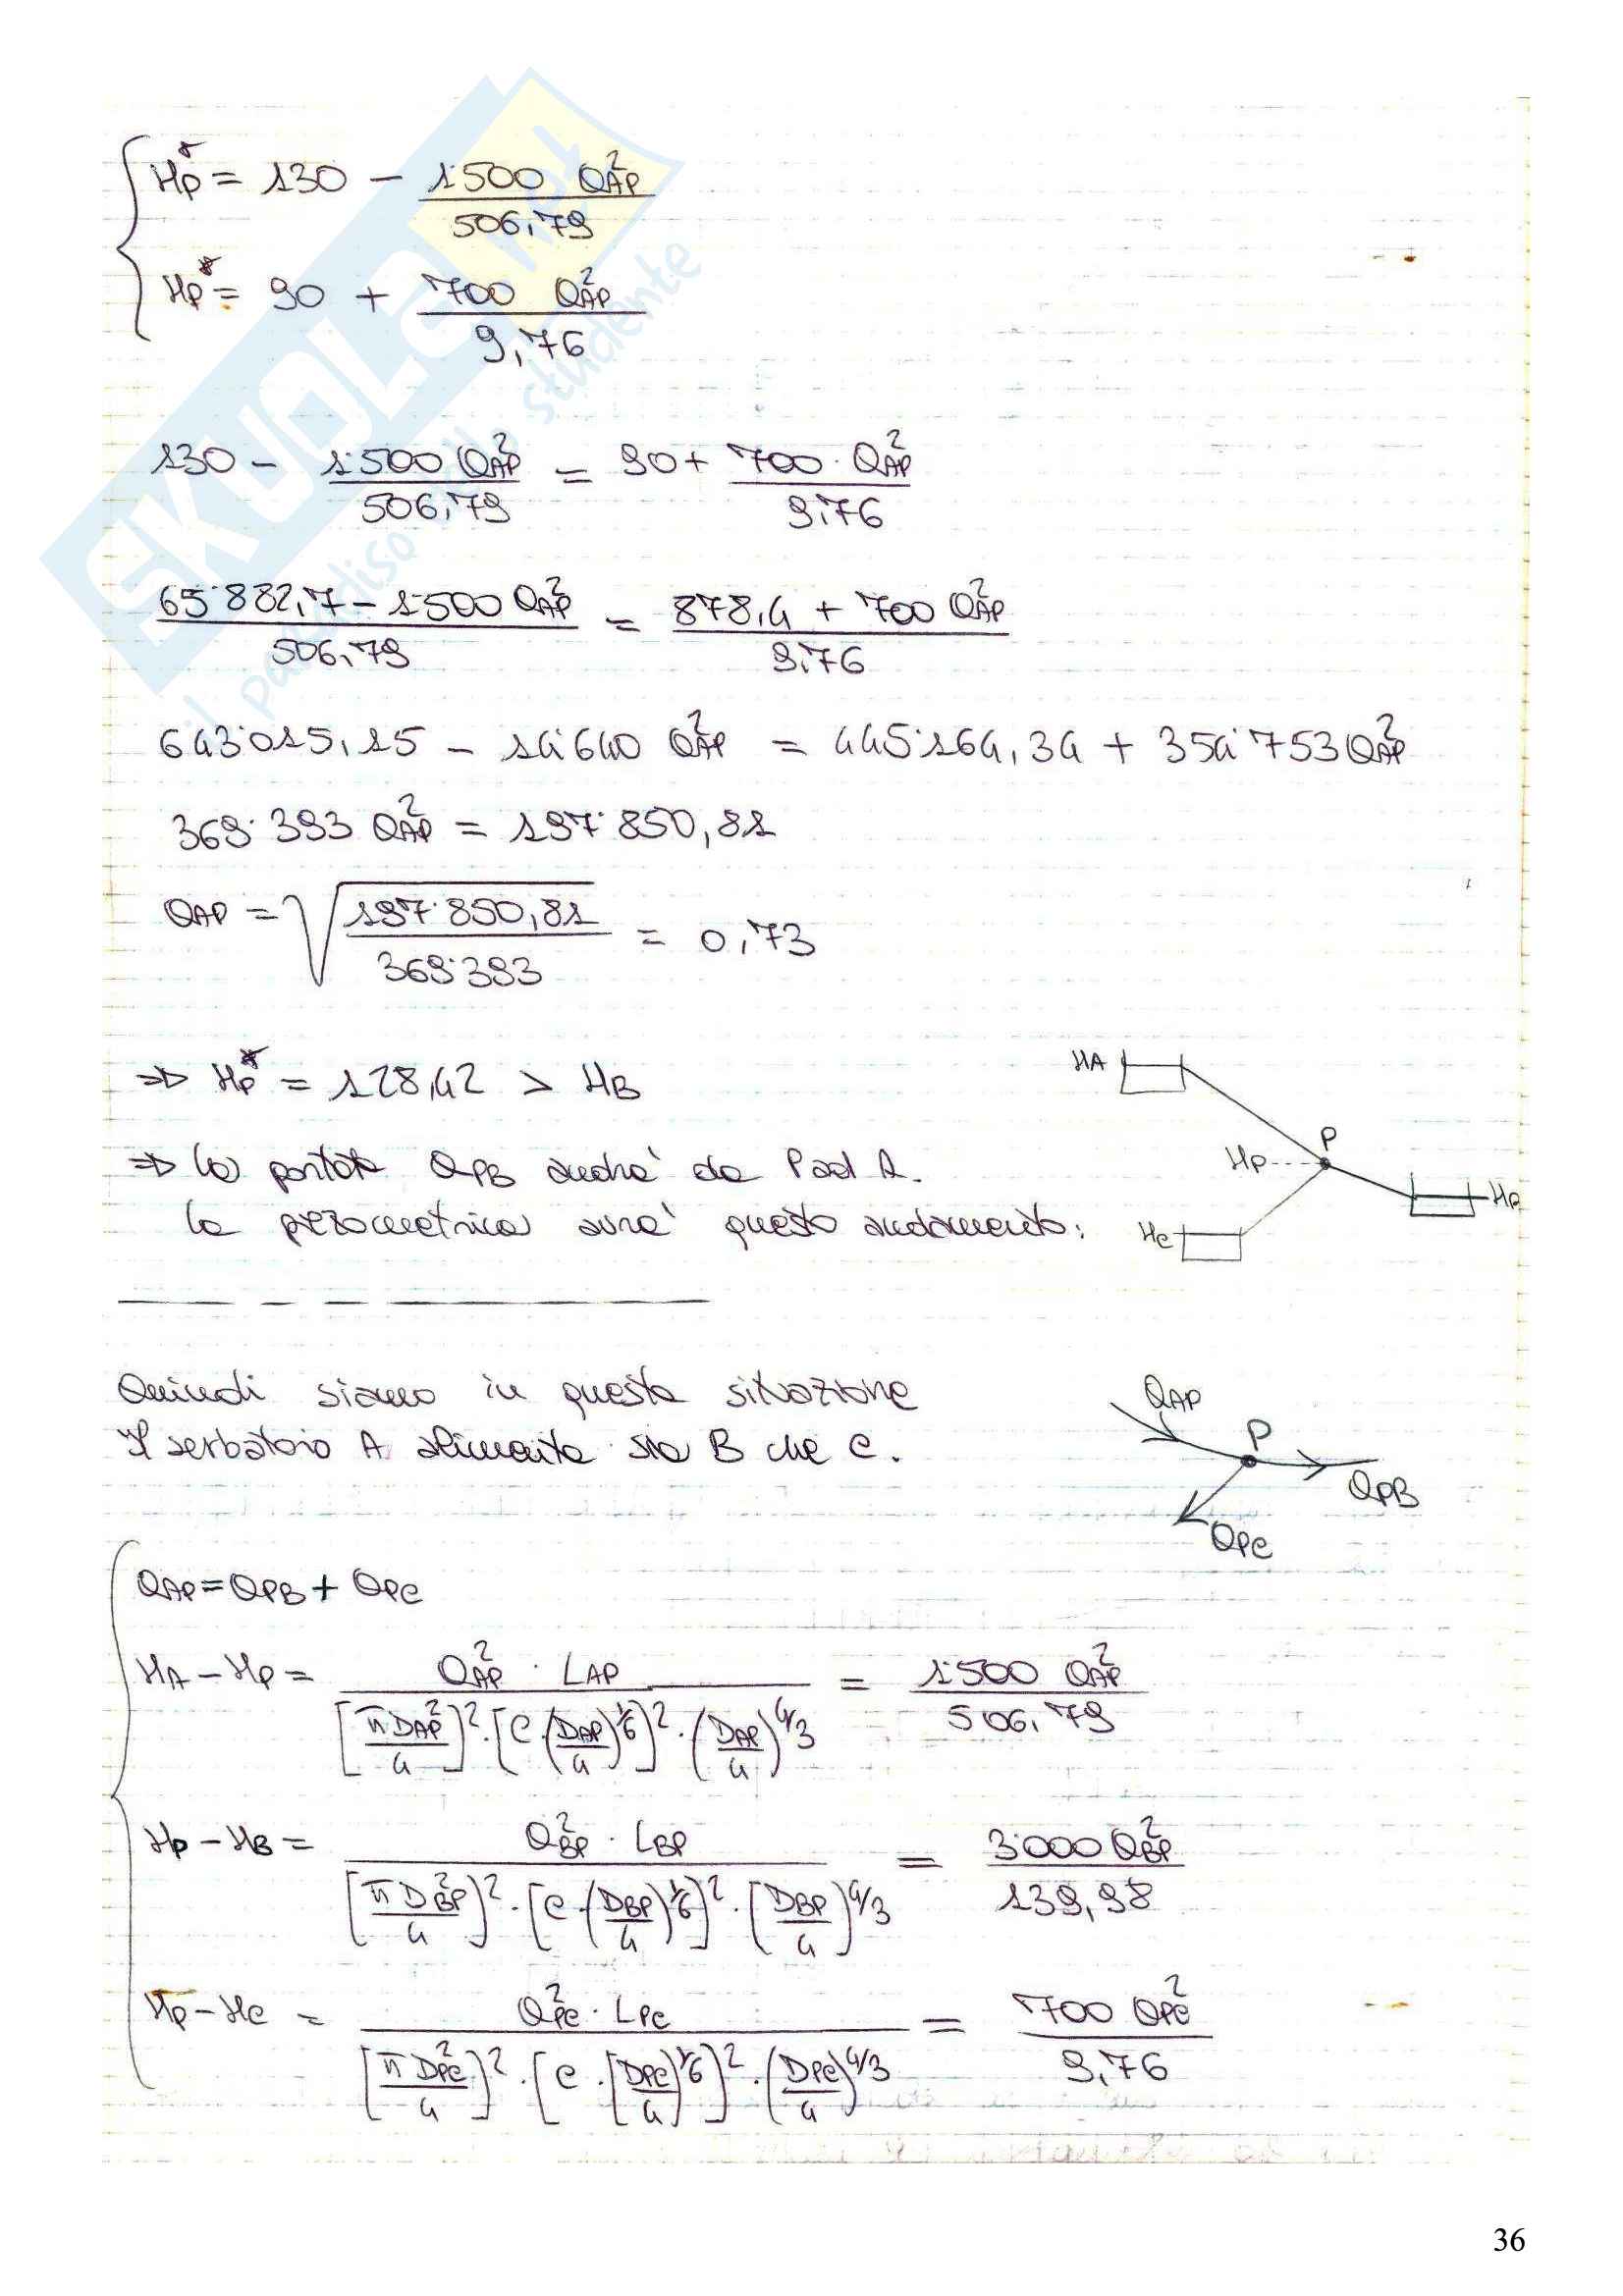 Hp* = 130 - 1'500 Q²AP / 506,79
Hp* = 90 + 700 Q²AP / 9,76
130 - 1'500 Q²AP / 506,79 = 90 + 700 · Q²AP / 9,76
65'882,7 - 1'500 Q²AP / 506,79 = 878,4 + 700 Q²AP / 9,76
643'015,15 - 14'640 Q²AP = 445'164,34 + 354'753 Q²AP
369'393 Q²AP = 197'850,81
QAP = √ 197'850,81 / 369'393 = 0,73
⇒ Hp* = 128,42 > HB
⇒ la portata QPB andra' da P ad A.
la piezometrica avra' questo andamento:
HA
P
Hp
HB
HC
Quindi siamo in questa situazione
Il serbatoio A alimenta sia B che C.
QAP
P
QPB
QPC
QAP = QPB + QPC
HA - HP = Q²AP · LAP / [πD²AP/4]² · [C · (DAP/4)^1/6]² · (DAP/4)^4/3 = 1'500 Q²AP / 506,79
HP - HB = Q²BP · LBP / [πD²BP/4]² · [C · (DBP/4)^1/6]² · [DBP/4]^4/3 = 3'000 Q²BP / 139,98
HP - HC = Q²PC · LPC / [πD²PC/4]² · [C · [DPC/4]^1/6]² · (DPC/4)^4/3 = 700 Q²PC / 9,76
36
SKUOLA.NET
il paradiso dello studente